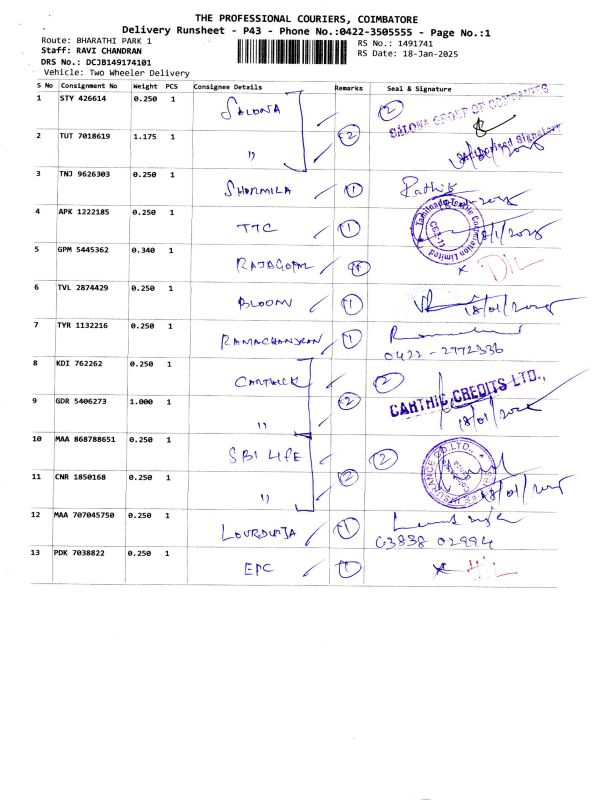 THE PROFESSIONAL COURIERS, COIMBATORE
Delivery Runsheet - P43 - Phone No.:0422-3505555 - Page No.:1
Route: BHARATHI PARK 1
RS No.: 1491741
Staff: RAVI CHANDRAN
RS Date: 18-Jan-2025
DRS No.: DCJB149174101
Vehicle: Two Wheeler Delivery
S No Consignment No Weight PCS Consignee Details Remarks Seal & Signature
1 STY 426614 0.250 1 SALONA 2
SALONA GROUP OF COMPANIES
2 TUT 7018619 1.175 1 " 2 Authorised Signature
3 TNJ 9626303 0.250 1 SHARMILA 1
4 APK 1222185 0.250 1 TTC 1 Tamilnadu Textile Corporation Limited 18/1/2025
5 GPM 5445362 0.340 1 RAJAGOPAL x DIL
6 TVL 2874429 0.250 1 BLOOM 1 18/01/2025
7 TYR 1132216 0.250 1 RAMACHANDRAN 1
0422-2772336
8 KDI 762262 0.250 1 CARTHICK 2
CARTHIC CREDITS LTD.,
9 GDR 5406273 1.000 1 " 2 18/01/2025
10 MAA 868788651 0.250 1 SBI LIFE 2
11 CNR 1850168 0.250 1 " 2 INSURANCE CO.LTD., 18/01/2025
12 MAA 707045750 0.250 1 LOURDURJA 1
03838 02994
13 PDK 7038822 0.250 1 EPC 1 x